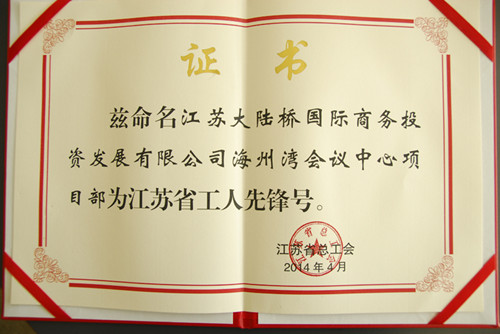 证书
兹命名江苏大陆桥国际商务投
资发展有限公司海州湾会议中心项
目部为江苏省工人先锋号。
江苏省总工会
2014年4月